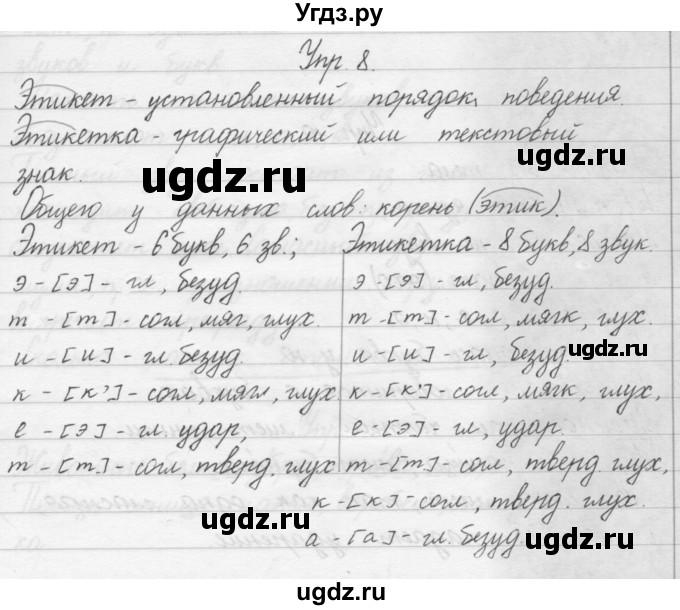 Угдз.ру
Упр. 8.
Этикет - установленный порядок поведения.
Этикетка - графический или текстовый
ugdz.ru
знак.
ugdz.ru
Общего у данных слов: корень (этик).
Этикет - 6 букв, 6 зв.; Этикетка - 8 букв, 8 звук.
э - [э] - гл, безуд. э - [э] - гл, безуд.
т - [т] - согл, мяг, глух. т - [т] - согл, мягк, глух.
и - [и] - гл. безуд. и - [и] - гл, безуд.
ugdz.ru
к - [к'] - согл, мягл, глух к - [к'] - согл, мягк, глух,
ugdz.ru
е - [э] - гл. удар, е - [э] - гл, удар.
т - [т. - согл, тверд. глух т - [т] - согл, тверд глух,
к - [к] - согл, тверд. глух.
ugdz.ru
а - [а] - гл. безуд
ugdz.ru
ugdz.ru